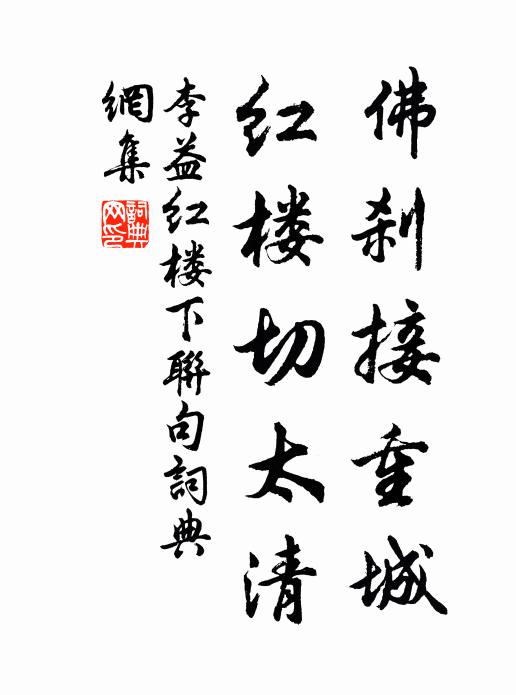 佛刹接重城
红楼切太清
李益红楼下聯句詞典
網集
詞典
网印